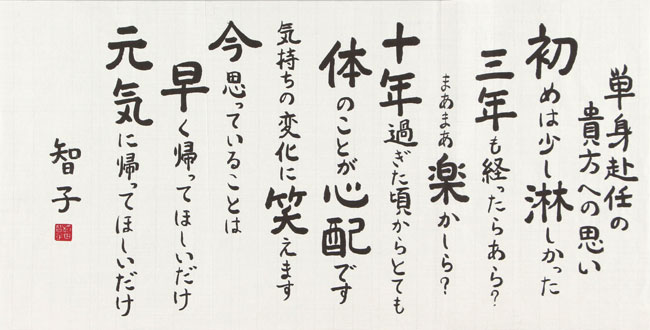 単身赴任の
貴方への思い
初めは少し淋しかった
三年も経ったらあら?
まあまあ楽かしら?
十年過ぎた頃からとても
体のことが心配です
気持ちの変化に笑えます
今思っていることは
早く帰ってほしいだけ
元気に帰ってほしいだけ
智子